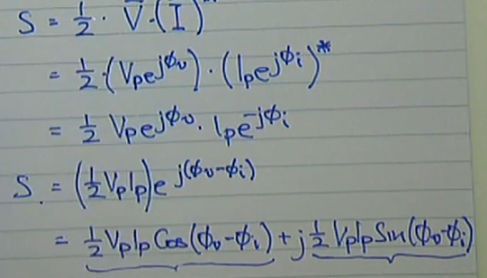 S = 1/2 · V̅ · (I)*
= 1/2 · (Vp e^jϕv) · (Ip e^jϕi)*
= 1/2 Vp e^jϕv · Ip e^-jϕi
S = (1/2 Vp Ip) e^j(ϕv-ϕi)
= 1/2 Vp Ip Cos(ϕv-ϕi) + j 1/2 Vp Ip Sin(ϕv-ϕi)